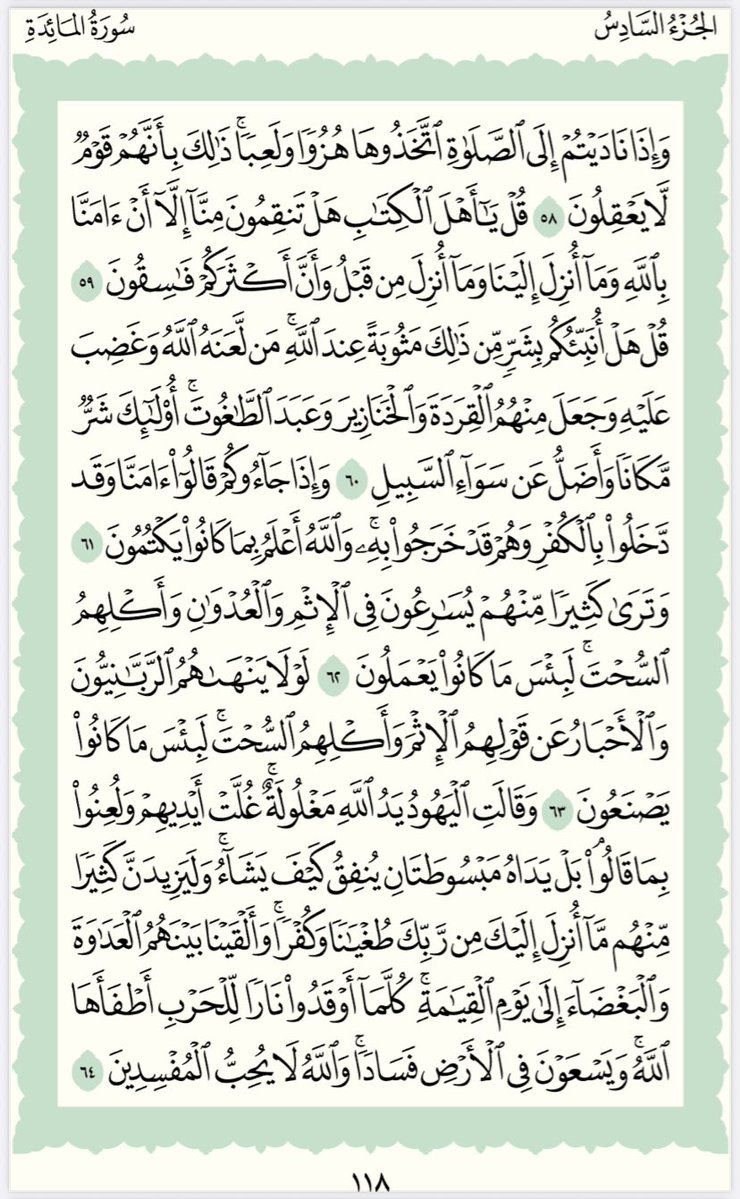 الجُزْءُ السَّادِسُ
سُورَةُ المَائِدَةِ
وَإِذَا نَادَيۡتُمۡ إِلَى ٱلصَّلَوٰةِ ٱتَّخَذُوهَا هُزُوٗا وَلَعِبٗاۚ ذَٰلِكَ بِأَنَّهُمۡ قَوۡمٞ
لَّا يَعۡقِلُونَ ٥٨ قُلۡ يَـٰٓأَهۡلَ ٱلۡكِتَٰبِ هَلۡ تَنقِمُونَ مِنَّآ إِلَّآ أَنۡ ءَامَنَّا
بِٱللَّهِ وَمَآ أُنزِلَ إِلَيۡنَا وَمَآ أُنزِلَ مِن قَبۡلُ وَأَنَّ أَكۡثَرَكُمۡ فَٰسِقُونَ ٥٩
قُلۡ هَلۡ أُنَبِّئُكُم بِشَرّٖ مِّن ذَٰلِكَ مَثُوبَةً عِندَ ٱللَّهِۚ مَن لَّعَنَهُ ٱللَّهُ وَغَضِبَ
عَلَيۡهِ وَجَعَلَ مِنۡهُمُ ٱلۡقِرَدَةَ وَٱلۡخَنَازِيرَ وَعَبَدَ ٱلطَّٰغُوتَۚ أُوْلَٰٓئِكَ شَرّٞ
مَّكَانٗا وَأَضَلُّ عَن سَوَآءِ ٱلسَّبِيلِ ٦٠ وَإِذَا جَآءُوكُمۡ قَالُوٓاْ ءَامَنَّا وَقَد
دَّخَلُواْ بِٱلۡكُفۡرِ وَهُمۡ قَدۡ خَرَجُواْ بِهِۦۚ وَٱللَّهُ أَعۡلَمُ بِمَا كَانُواْ يَكۡتُمُونَ ٦١
وَتَرَىٰ كَثِيرٗا مِّنۡهُمۡ يُسَٰرِعُونَ فِي ٱلۡإِثۡمِ وَٱلۡعُدۡوَٰنِ وَأَكۡلِهِمُ
ٱلسُّحۡتَۚ لَبِئۡسَ مَا كَانُواْ يَعۡمَلُونَ ٦٢ لَوۡلَا يَنۡهَىٰهُمُ ٱلرَّبَّٰنِيُّونَ
وَٱلۡأَحۡبَارُ عَن قَوۡلِهِمُ ٱلۡإِثۡمَ وَأَكۡلِهِمُ ٱلسُّحۡتَۚ لَبِئۡسَ مَا كَانُواْ
يَصۡنَعُونَ ٦٣ وَقَالَتِ ٱلۡيَهُودُ يَدُ ٱللَّهِ مَغۡلُولَةٌۚ غُلَّتۡ أَيۡدِيهِمۡ وَلُعِنُواْ
بِمَا قَالُواْۘ بَلۡ يَدَاهُ مَبۡسُوطَتَانِ يُنفِقُ كَيۡفَ يَشَآءُۚ وَلَيَزِيدَنَّ كَثِيرٗا
مِّنۡهُم مَّآ أُنزِلَ إِلَيۡكَ مِن رَّبِّكَ طُغۡيَٰنٗا وَكُفۡرٗاۚ وَأَلۡقَيۡنَا بَيۡنَهُمُ ٱلۡعَدَٰوَةَ
وَٱلۡبَغۡضَآءَ إِلَىٰ يَوۡمِ ٱلۡقِيَٰمَةِۚ كُلَّمَآ أَوۡقَدُواْ نَارٗا لِّلۡحَرۡبِ أَطۡفَأَهَا
ٱللَّهُۚ وَيَسۡعَوۡنَ فِي ٱلۡأَرۡضِ فَسَادٗاۚ وَٱللَّهُ لَا يُحِبُّ ٱلۡمُفۡسِدِينَ ٦٤
١١٨